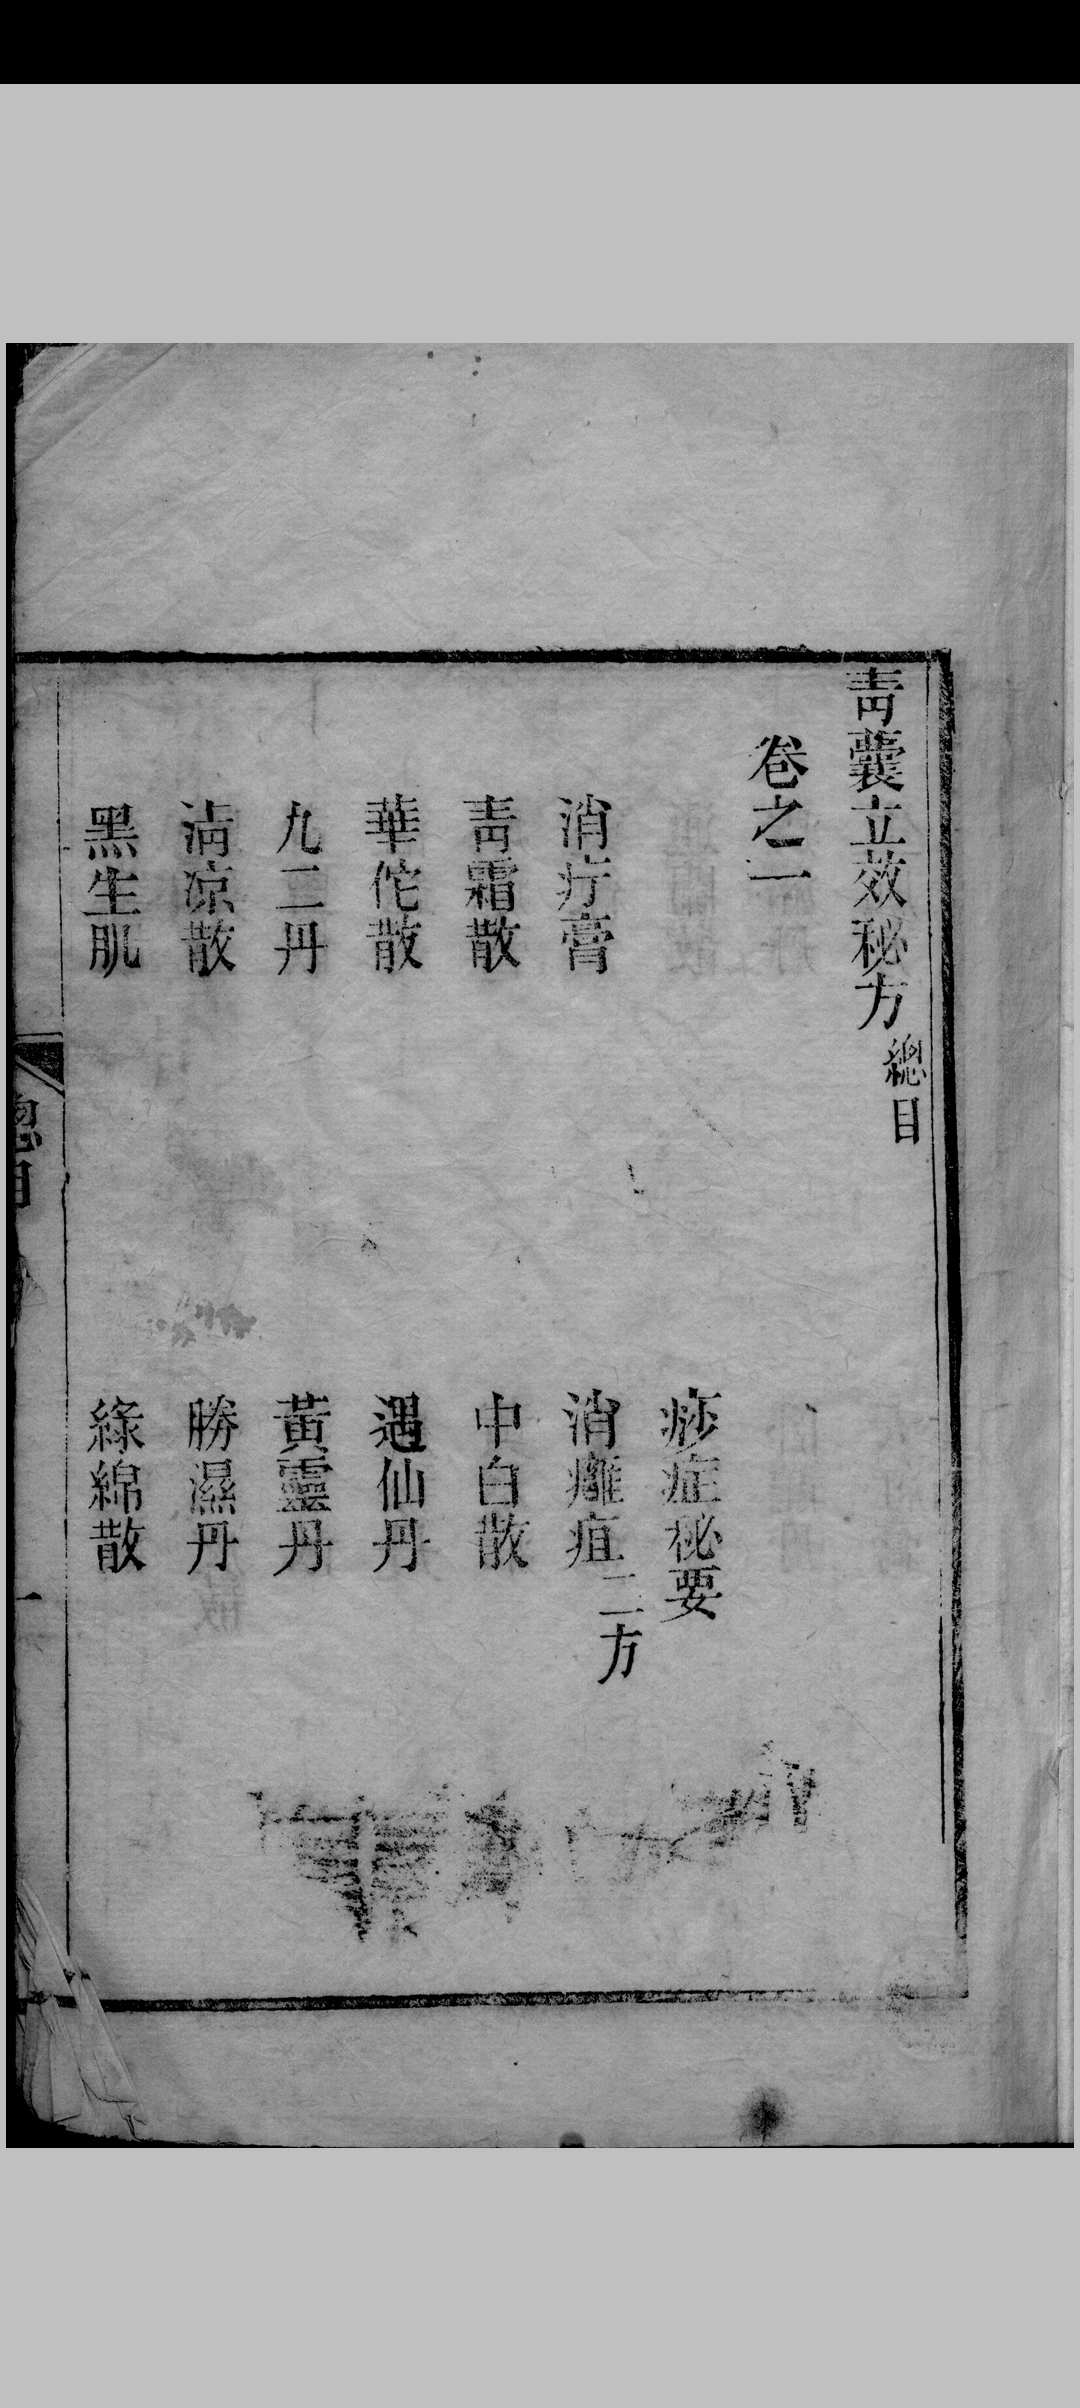 靑囊立效秘方總目
卷之二
痧症秘要
消疔膏
消癰疽二方
靑霜散
中白散
華佗散
遇仙丹
九二丹
黃靈丹
淸凉散
勝濕丹
黑生肌
綠綿散
總目
一